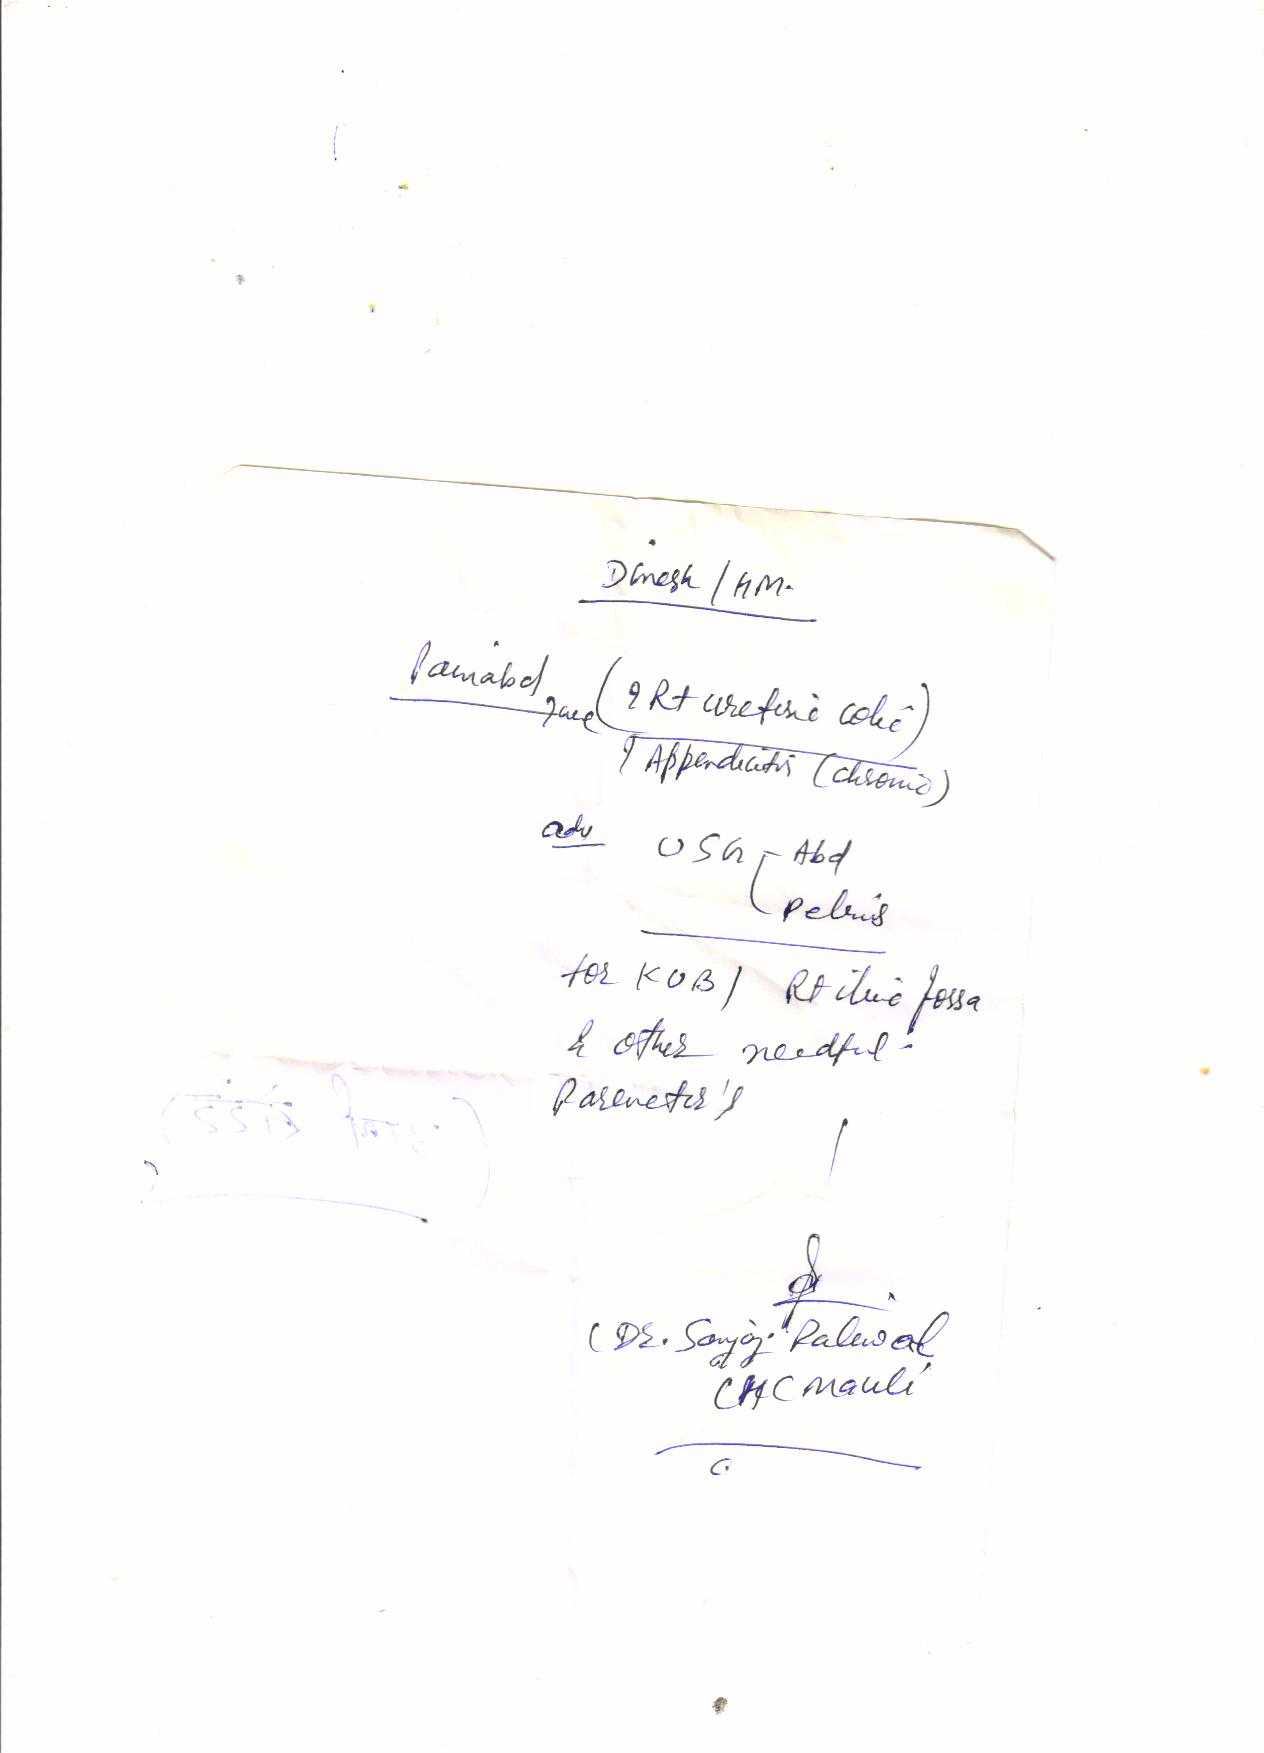 Dinesh / HM.
Pain abd
(? Rt ureteric colic)
? Appendicitis (chronic)
adv USG - Abd
Pelvis
for KUB / Rt iliac fossa
& other needful
Paremeter's
(Dr. Sanjay Paliwal
CHC Mauli